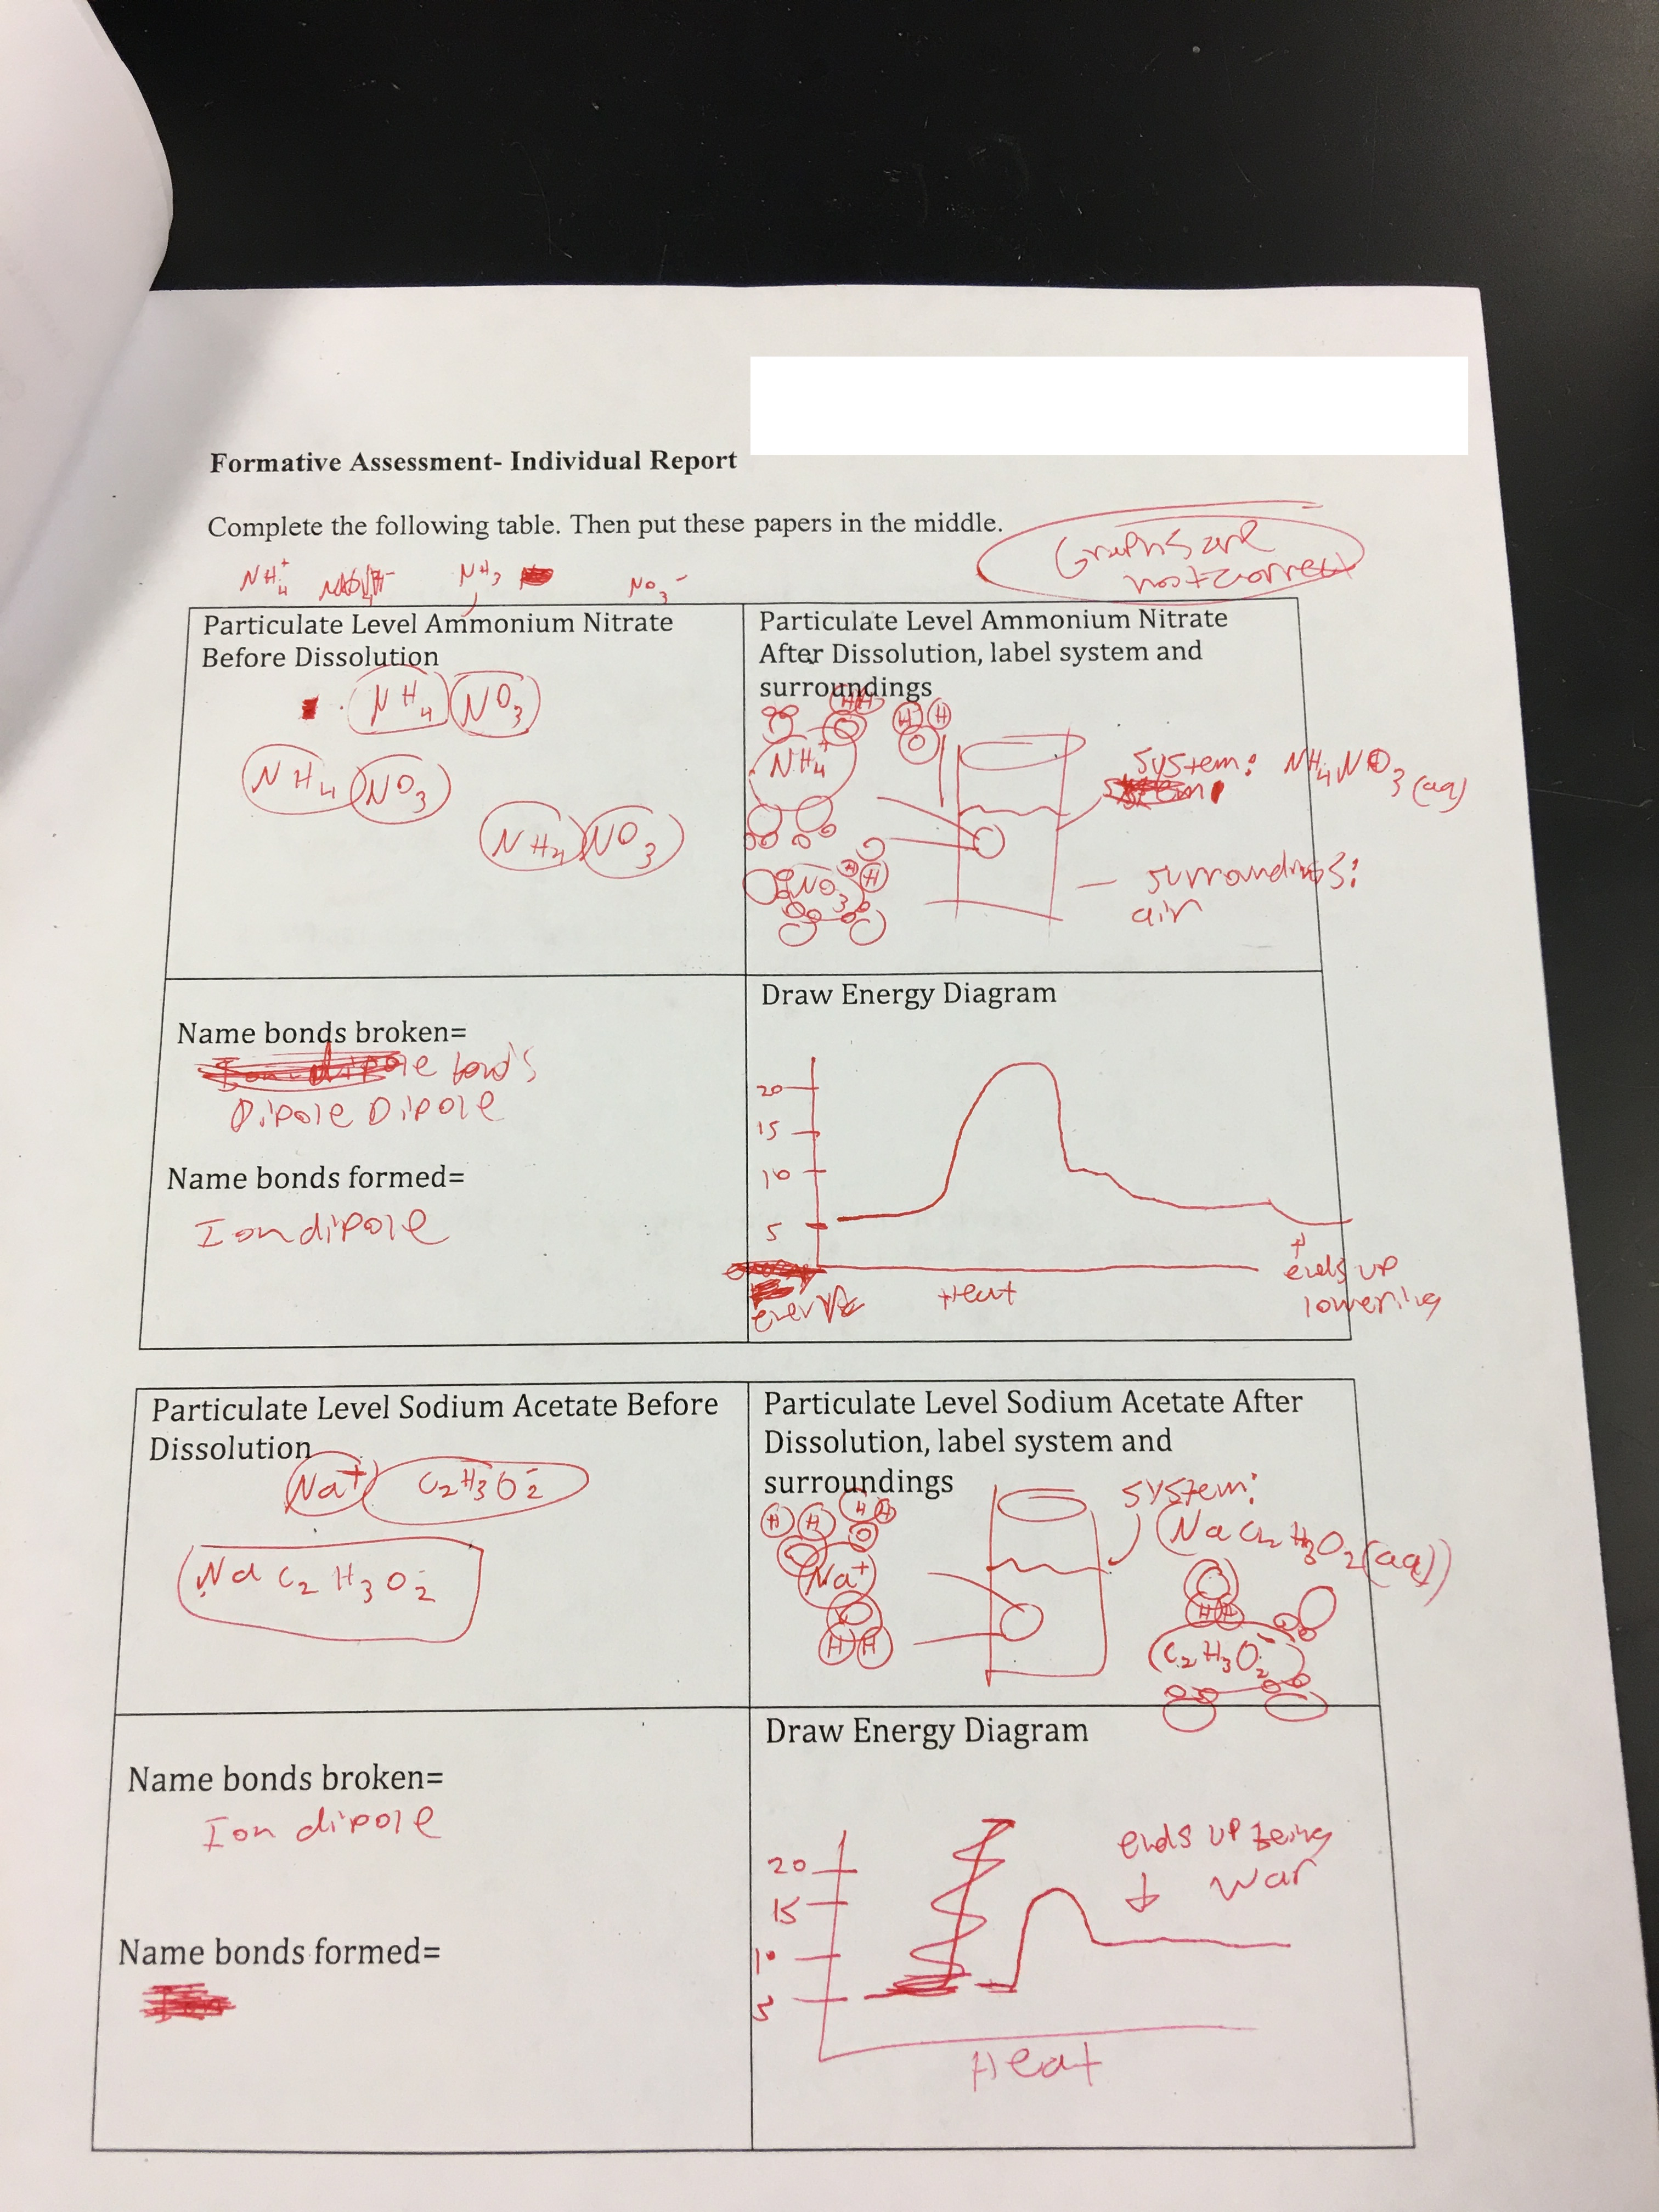 Formative Assessment- Individual Report
Complete the following table. Then put these papers in the middle.
Graphs are
not correct
NH4+ NH3 NO3-
Particulate Level Ammonium Nitrate
Before Dissolution
NH4 NO3
NH4 NO3
NH4 NO3
Particulate Level Ammonium Nitrate
After Dissolution, label system and
surroundings
H H H H
O
NH4+
System: NH4NO3(aq)
H H
NO3
surroundings:
air
Name bonds broken=
Ion-dipole bonds
Dipole Dipole
Name bonds formed=
Ion dipole
Draw Energy Diagram
20
15
10
5
energy
Heat
ends up
lowering
Particulate Level Sodium Acetate Before
Dissolution
Na+ C2H3O2-
Na C2H3O2-
Particulate Level Sodium Acetate After
Dissolution, label system and
surroundings
system:
(NaC2H3O2(aq))
H H H H
O
Na+
H H
H H
C2H3O2-
Name bonds broken=
Ion dipole
Name bonds formed=
Draw Energy Diagram
20
15
10
5
ends up being
war
Heat